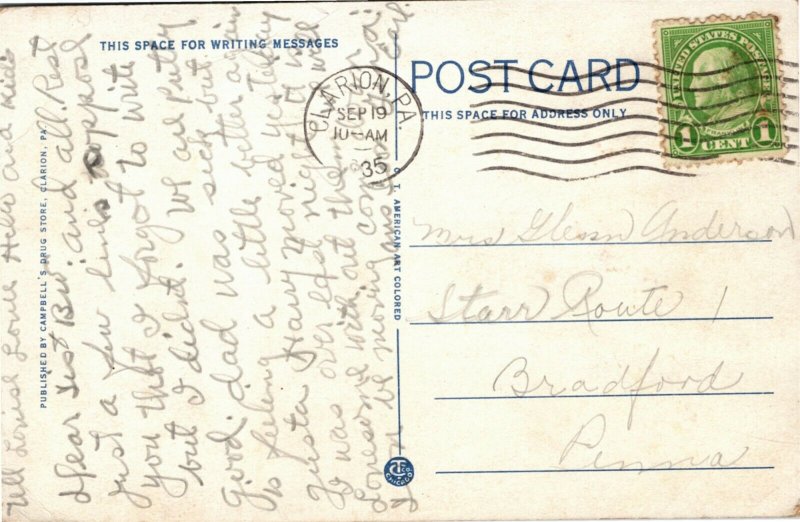 THIS SPACE FOR WRITING MESSAGES
POST CARD
THIS SPACE FOR ADDRESS ONLY
CLARION, PA.
SEP 19
10-AM
35
UNITED STATES POSTAGE
1 CENT 1
PUBLISHED BY CAMPBELL'S DRUG STORE, CLARION, PA.
C. T. AMERICAN ART COLORED
Tell Louise Hello and kids
Dear Sis Bw. and all. Rest
Just a few lines suppose
you that I forgot to write
but I didn't. We are pretty
good. dad was sick but
is feeling a little better again
Harry moved yesterday
was over last night it will
Lonesome with out them
be moving
Mrs Glenn Anderson
Starr Route 1
Bradford
Penna